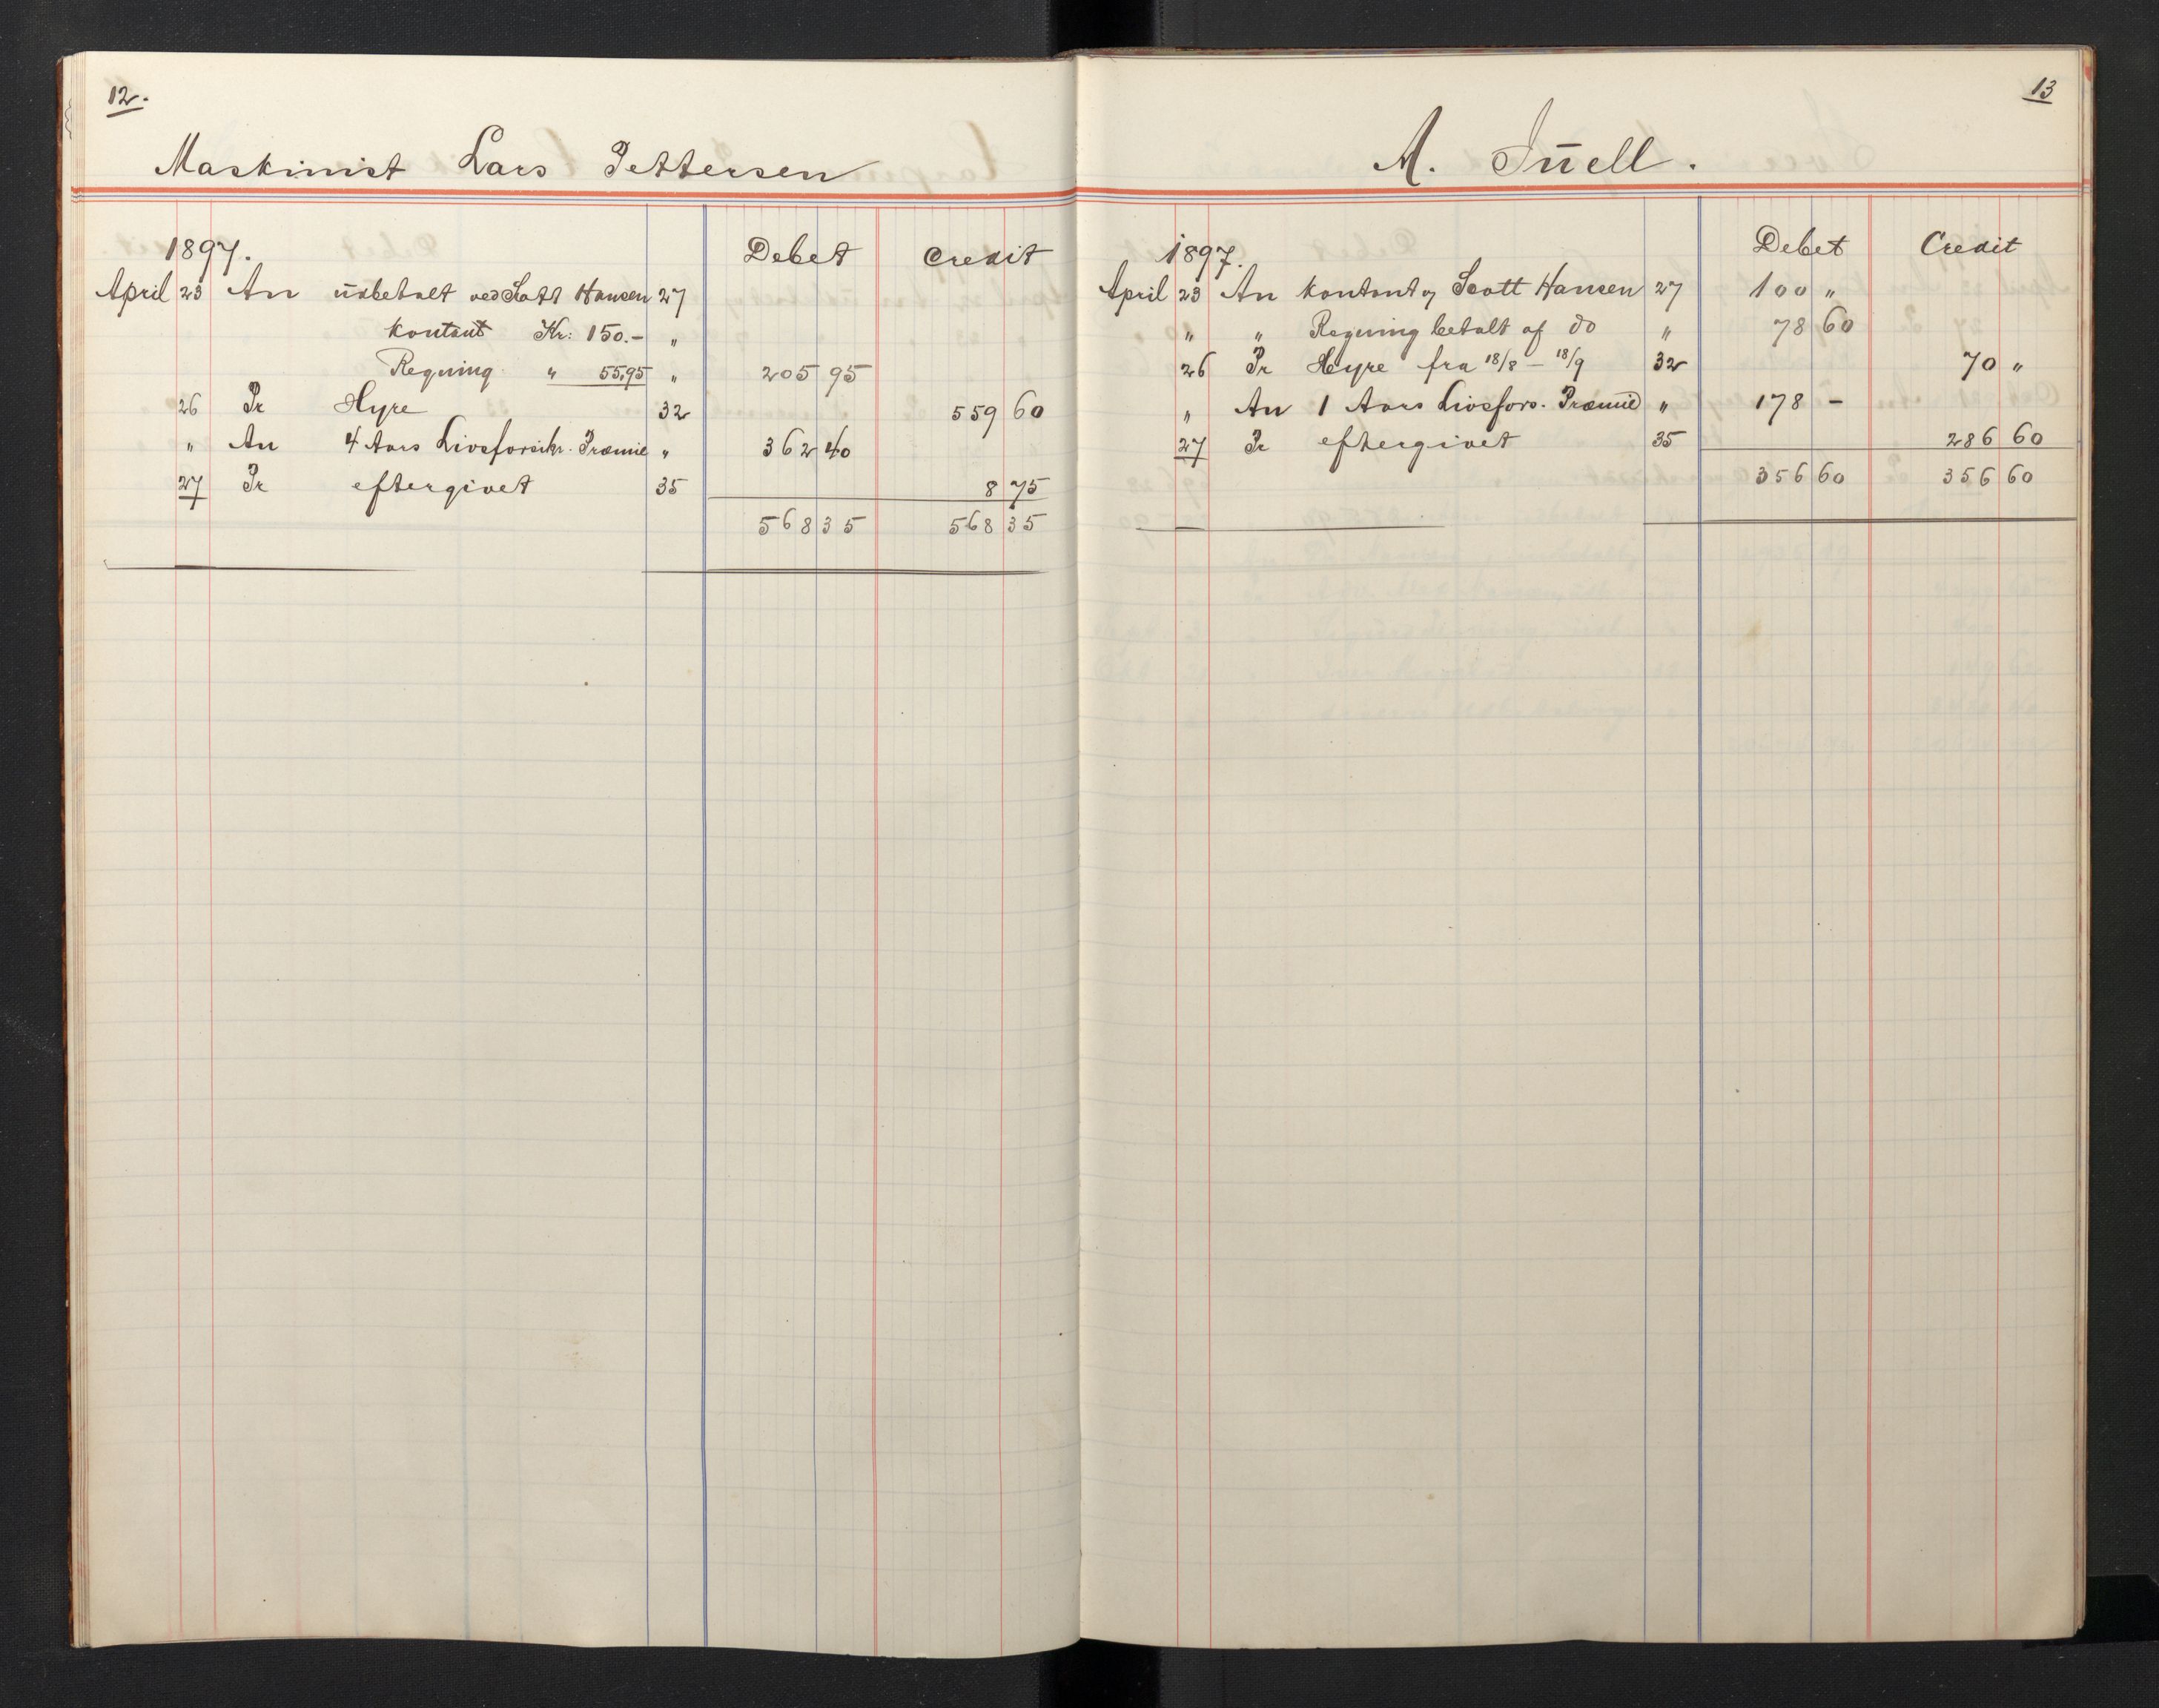 12.
Maskinist Lars Pettersen
1897. Debet Credit
April 23 An udbetalt ved Scott Hansen 27
kontant Kr: 150.- "
Regning " 55,95 " 205 95
26 Pr Hyre 32 559 60
" An 4 Aars Livsforsikr. Præmie " 362 40
27 Pr eftergivet 35 8 75
568 35 568 35
13
A. Juell.
1897. Debet Credit
April 23 An kontant af Scott Hansen 27 100 "
" " Regning betalt af do " 78 60
26 Pr Hyre fra 18/8 - 18/9 32 70 "
" An 1 Aars Livsfors. Præmie " 178 -
27 Pr eftergivet 35 286 60
356 60 356 60